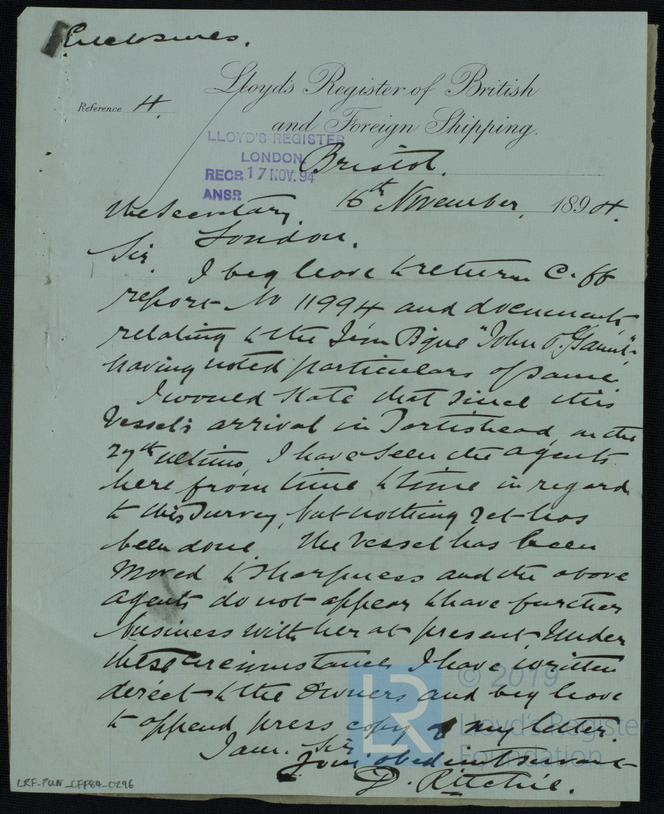 Enclosures.
Lloyd's Register of British
Reference H.
and Foreign Shipping.
LLOYD'S REGISTER
LONDON
RECD. 17 NOV. 94
ANSD
Bristol.
16th November, 1894.
The Secretary,
London.
Sir.
I beg leave to return C. ff
report No 11994 and documents
relating to the Iron Bque "John O'Gaunt",
having noted particulars of same.
I would state that since this
Vessel's arrival in Portishead, on the
29th ultimo, I have seen the agents
here from time to time in regard
to this Survey, but nothing yet has
been done. The Vessel has been
moved to Sharpness and the above
agents do not appear to have further
business with her at present. Under
these circumstances I have written
direct to the Owners and beg leave
to append press copy of my letter.
I am. Sir
Your obedient Servant
D. Ritchie.
© 2019
LR
Lloyd's Register
Foundation
LRF-PUN_CFF84_0296